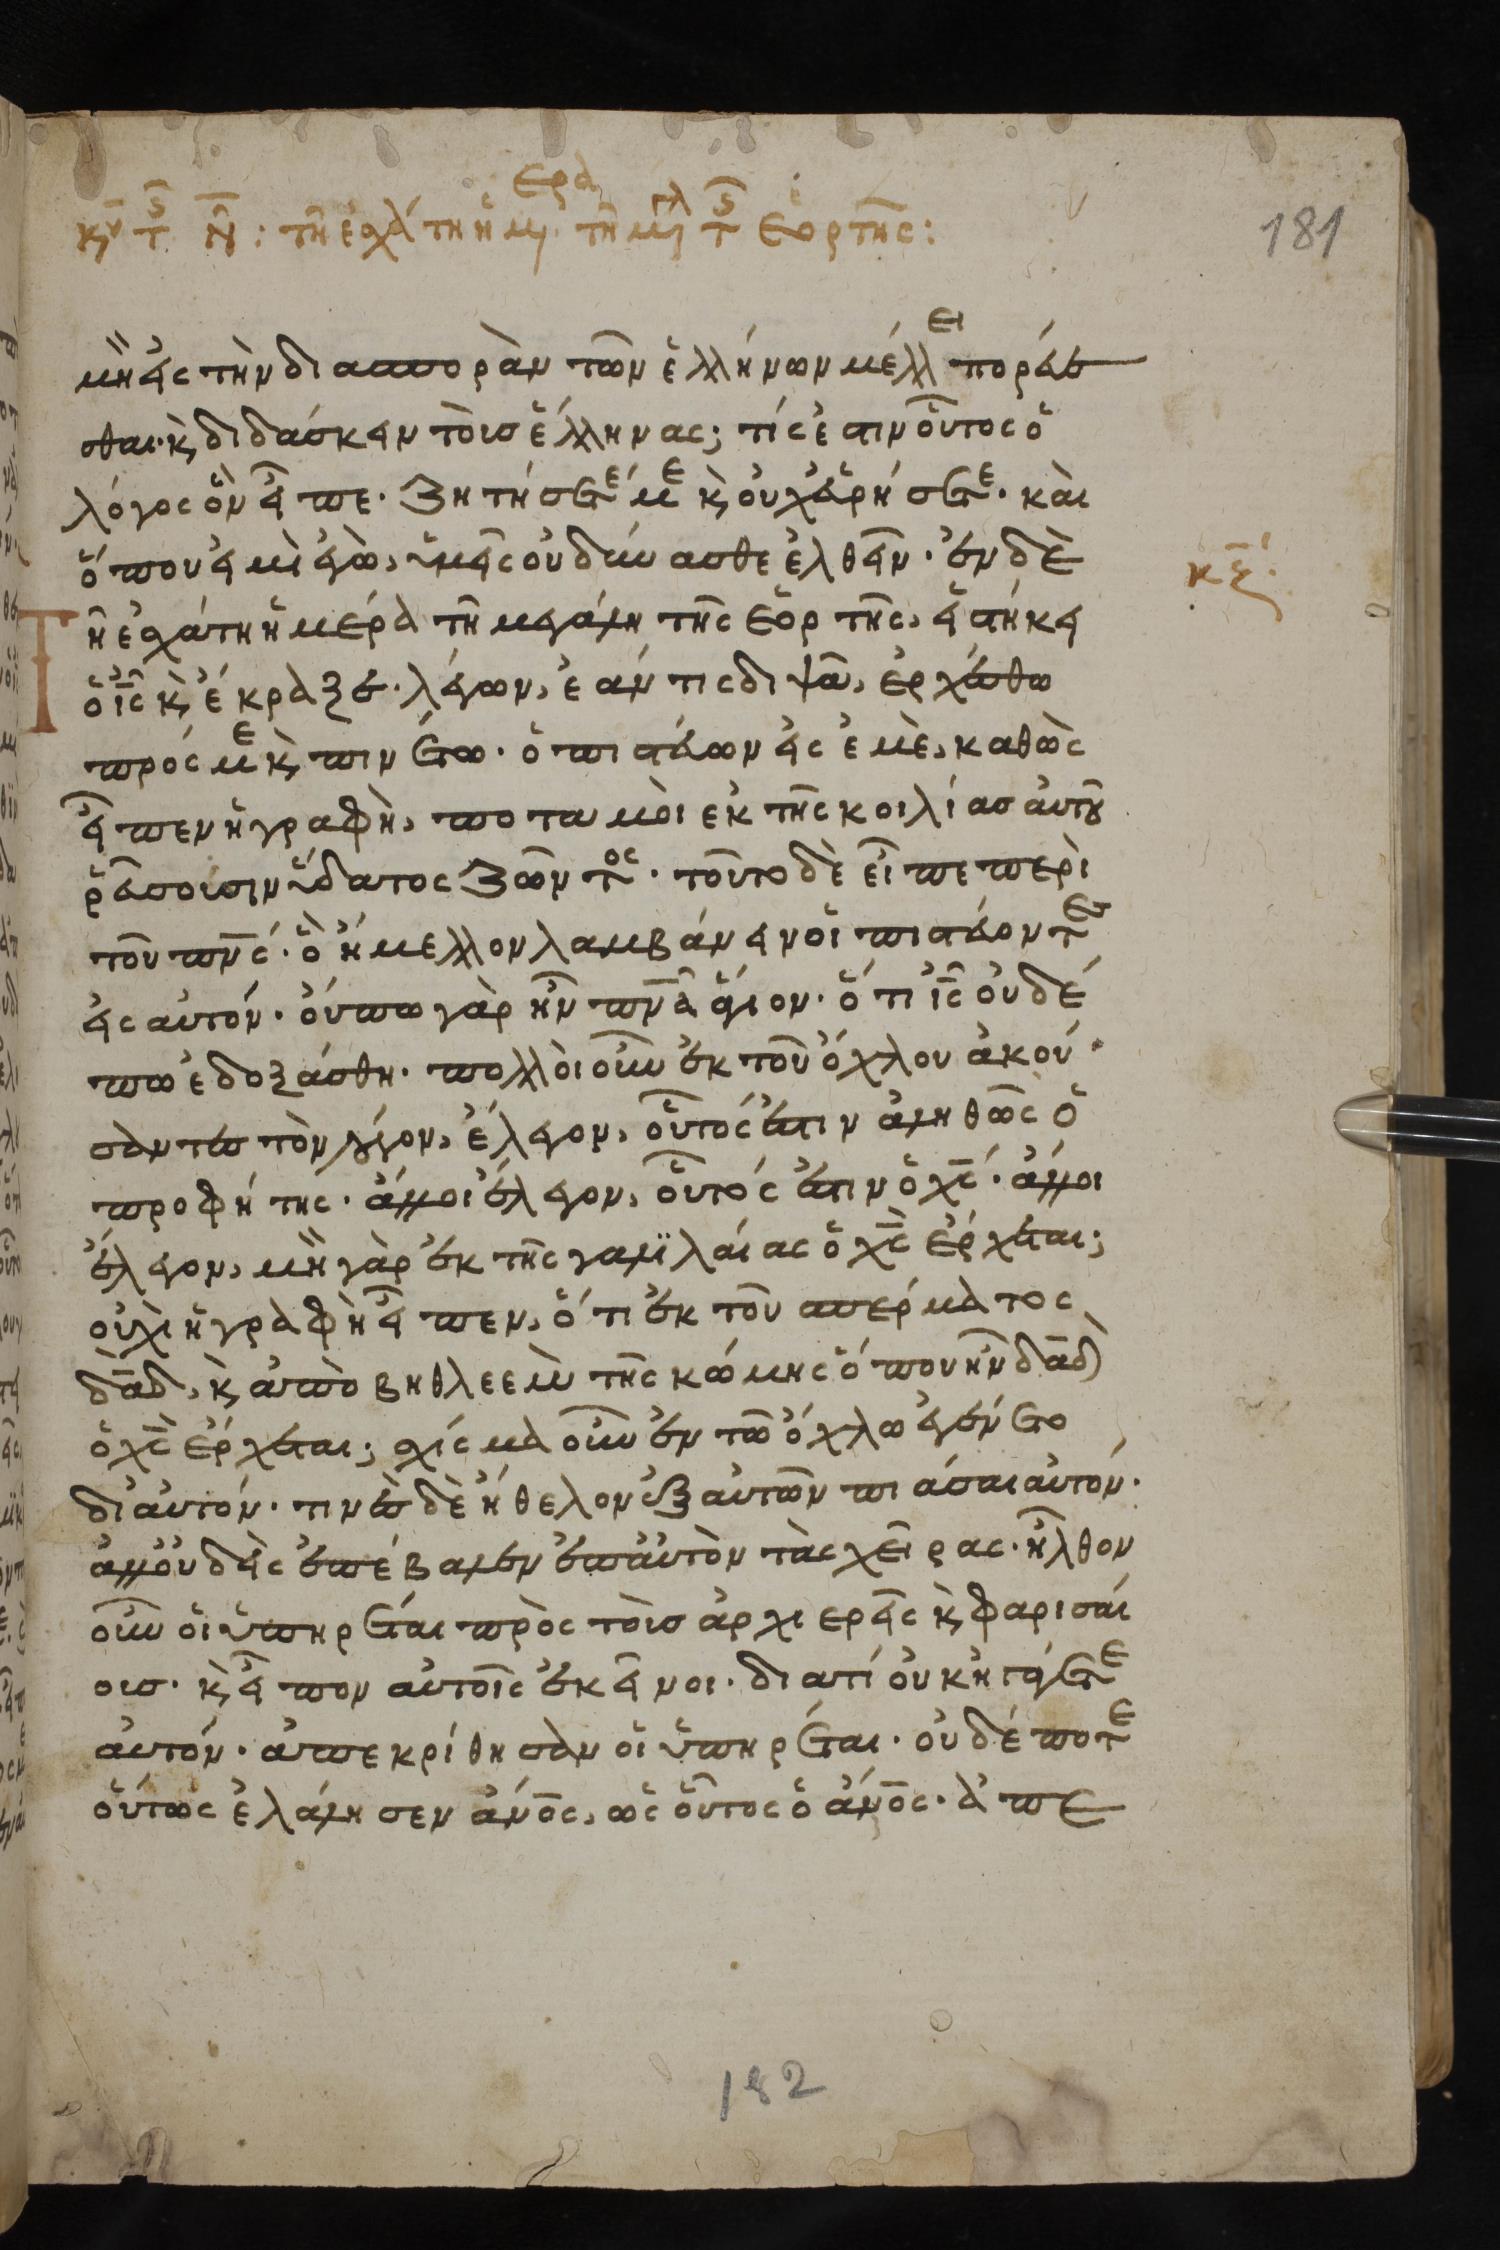 κυ τς Ν : τῆ ἐσχάτη ἡμέρα τῆ μγλ τς ἑορτῆς :
181
μὴ εἰς τὴν διασπορὰν τῶν ἑλλήνων μέλλει πορεύε
σθαι· κ διδάσκειν τοὺσ ἕλληνας; τίς ἐστιν οὗτος ὁ
λόγος ὃν εἶπε· ζητήσετέ με κ οὐχ εὑρήσετε· καὶ
ὅπου εἰμὶ ἐγὼ, ὑμεῖς οὐ δύνασθε ἐλθεῖν· ἐν δὲ
κϛ·
Τῆ ἐσχάτη ἡμέρα τῆ μεγάλη τῆς ἑορτῆς, εἱστήκει
ὁ ις κ ἔκραξε· λέγων, ἐάν τις διψᾶ, ἐρχέσθω
πρός με κ πινέτω· ὁ πιστεύων εἰς ἐμὲ, καθὼς
εἶπεν ἡ γραφὴ, ποταμοὶ ἐκ τῆς κοιλίασ αὐτοῦ
ῥεύσουσιν ὕδατος ζῶντος· τοῦτο δὲ εἶπε περὶ
τοῦ πνς· ὃ ἤμελλον λαμβάνειν οἱ πιστεύοντες
εἰς αὐτόν· οὔπω γὰρ ἦν πνα ἅγιον· ὅτι ις οὐδέ
πω ἐδοξάσθη· πολλοὶ οὖν ἐκ τοῦ ὄχλου ἀκού
σαντες τὸν λόγον, ἔλεγον, οὗτός ἐστιν ἀληθῶς ὁ
προφήτης· ἄλλοι ἔλεγον, οὗτός ἐστιν ὁ χς· ἄλλοι
ἔλεγον, μὴ γὰρ ἐκ τῆς γαλιλαίας ὁ χς ἔρχεται;
οὐχὶ ἡ γραφὴ εἶπεν, ὅτι ἐκ τοῦ σπέρματος
δαδ, κ ἀπὸ βηθλεὲμ τῆς κώμης ὅπου ἦν δαδ
ὁ χς ἔρχεται; σχίσμα οὖν ἐν τῶ ὄχλω ἐγένετο
δι αὐτόν· τινὲς δὲ ἤθελον ἐξ αὐτῶν πιάσαι αὐτόν·
ἀλλ οὐδεὶς ἐπέβαλεν ἐπ αὐτὸν τὰς χεῖρας· ἦλθον
οὖν οἱ ὑπηρέται πρὸς τοὺσ ἀρχιερεῖς κ φαρισαί
ουσ· κ εἶπον αὐτοῖς ἐκεῖνοι· διατί οὐκ ἠγάγετε
αὐτόν· ἀπεκρίθησαν οἱ ὑπηρέται· οὐδέποτε
οὕτως ἐλάλησεν ἄνος, ὡς οὗτος ὁ ἄνος· ἀπε
182